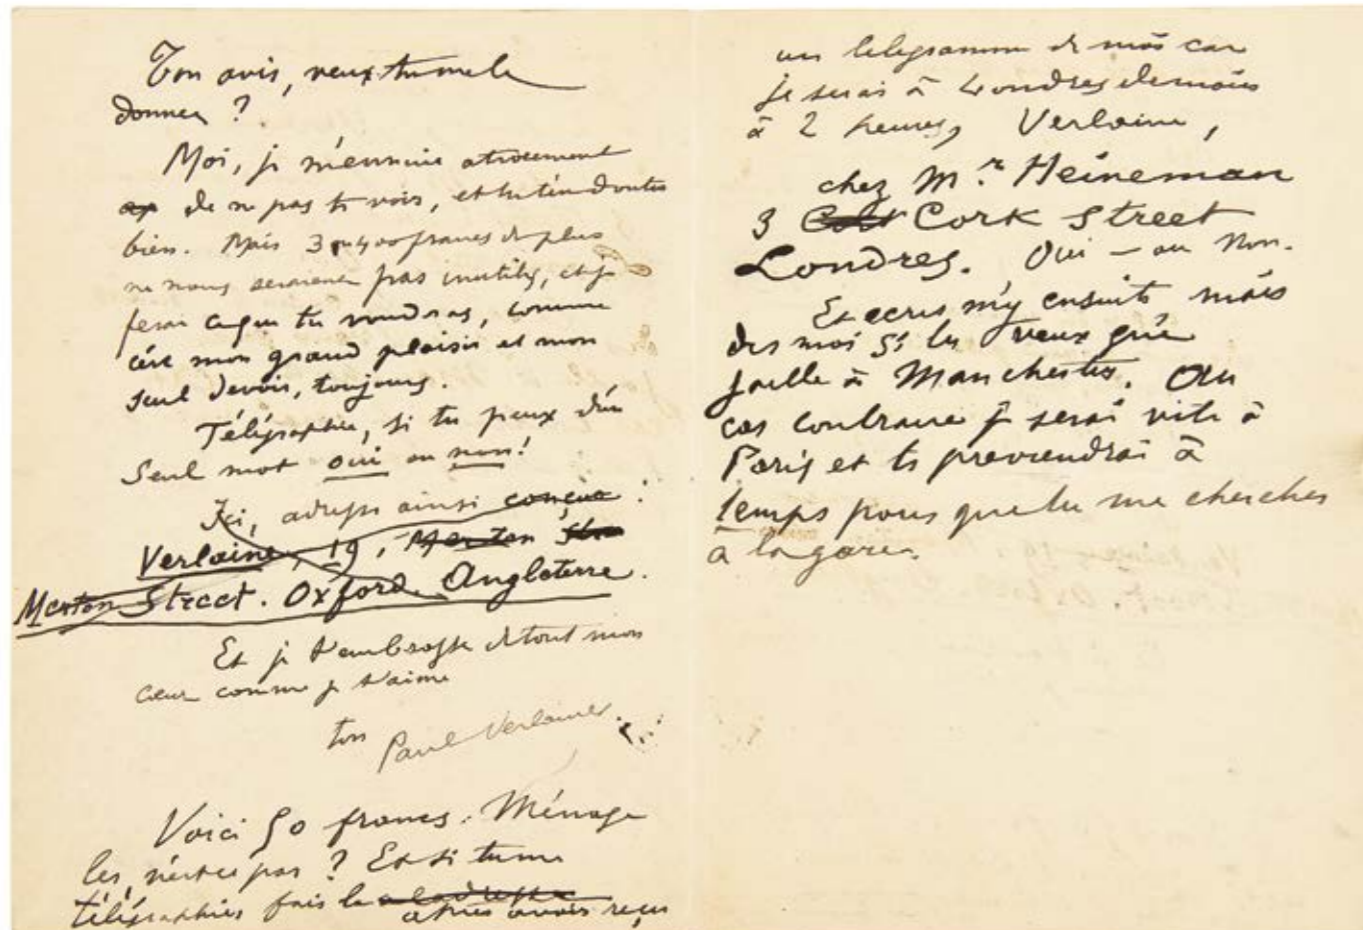 Ton avis, veux-tu me le
donner ?
Moi, je m'ennuie atrocement
de ne pas te voir, et tu t'en doutes
bien. Mais 3 ou 400 francs de plus
ne nous seraient pas inutiles, et je
ferai ce que tu voudras, comme
c'est mon grand plaisir et mon
seul devoir, toujours.
Télégraphie, si tu peux d'un
seul mot oui ou non !
Ici, adresse ainsi conçue :
Verlaine, 19, Merton Str
Merton Street. Oxford. Angleterre.
Et je t'embrasse de tout mon
cœur comme je t'aime
ton Paul Verlaine.
Voici 50 francs. Ménage
les, n'est-ce pas ? Et si tu me
télégraphies fais le à l'adresse après avoir reçu
un télégramme de moi car
je serai à Londres demain
à 2 heures, Verlaine,
chez Mr. Heineman
3 Colt Cork Street
Londres. Oui — ou Non.
Et écris m'y ensuite mais
dis moi si tu veux que
j'aille à Manchester. Au
cas contraire je serai vite à
Paris et te préviendrai à
temps pour que tu me cherches
à la gare.